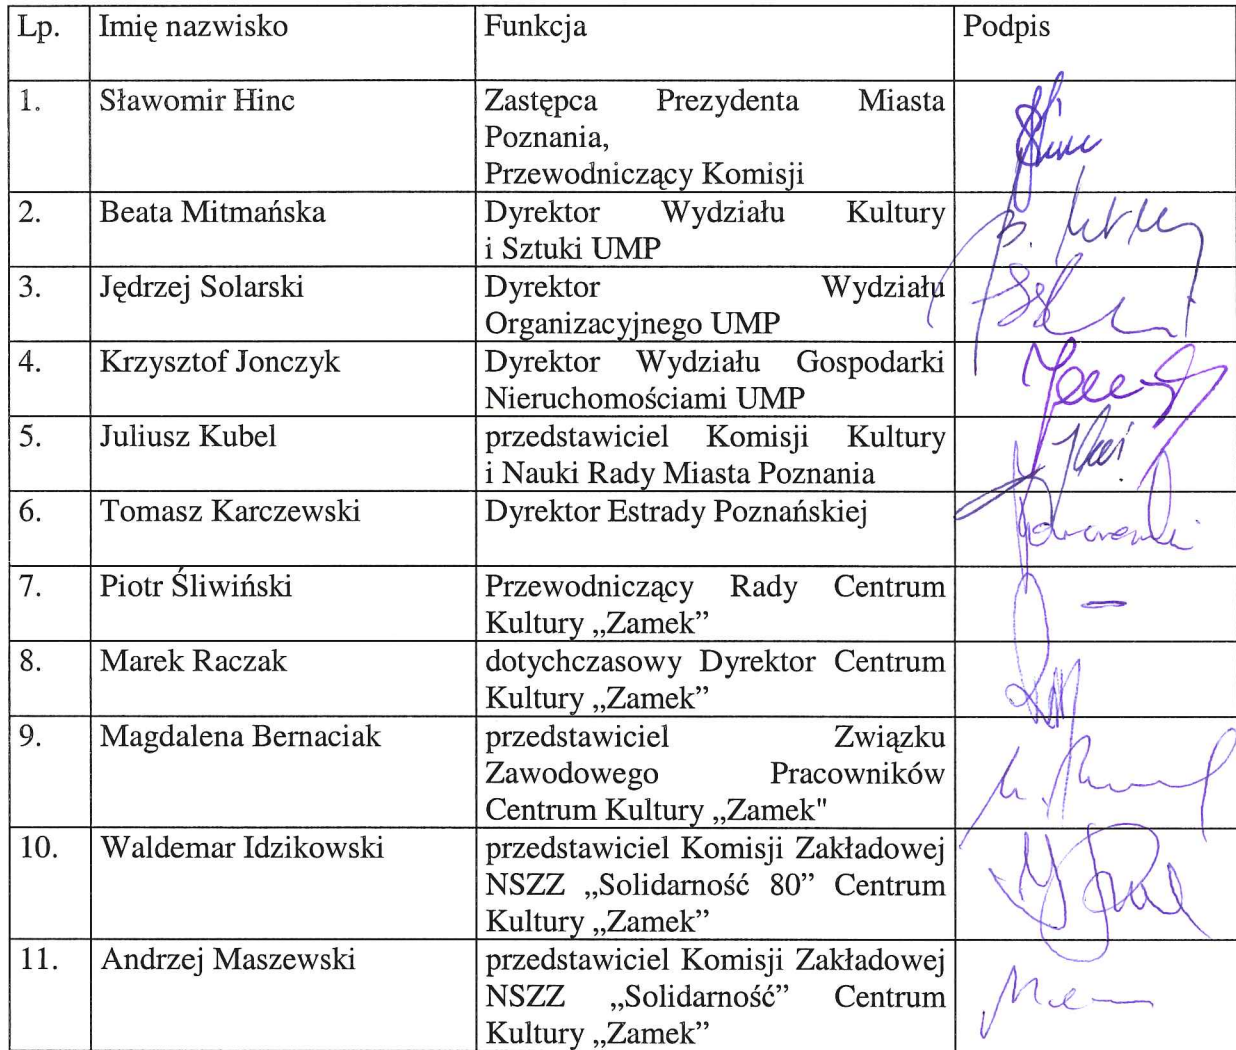 Lp. Imię nazwisko Funkcja Podpis
1. Sławomir Hinc Zastępca Prezydenta Miasta
Poznania,
Przewodniczący Komisji
2. Beata Mitmańska Dyrektor Wydziału Kultury
i Sztuki UMP
3. Jędrzej Solarski Dyrektor Wydziału
Organizacyjnego UMP
4. Krzysztof Jonczyk Dyrektor Wydziału Gospodarki
Nieruchomościami UMP
5. Juliusz Kubel przedstawiciel Komisji Kultury
i Nauki Rady Miasta Poznania
6. Tomasz Karczewski Dyrektor Estrady Poznańskiej
7. Piotr Śliwiński Przewodniczący Rady Centrum
Kultury „Zamek” –
8. Marek Raczak dotychczasowy Dyrektor Centrum
Kultury „Zamek”
9. Magdalena Bernaciak przedstawiciel Związku
Zawodowego Pracowników
Centrum Kultury „Zamek"
10. Waldemar Idzikowski przedstawiciel Komisji Zakładowej
NSZZ „Solidarność 80” Centrum
Kultury „Zamek”
11. Andrzej Maszewski przedstawiciel Komisji Zakładowej
NSZZ „Solidarność” Centrum
Kultury „Zamek”